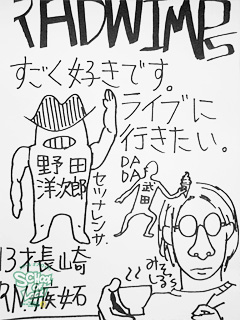 RADWIMPS
すごく好きです。
ライブに
行きたい。
野田
洋次郎
セツナレンサ.
DADA
武田
みそしる's
13才長崎
RN.嫉妬